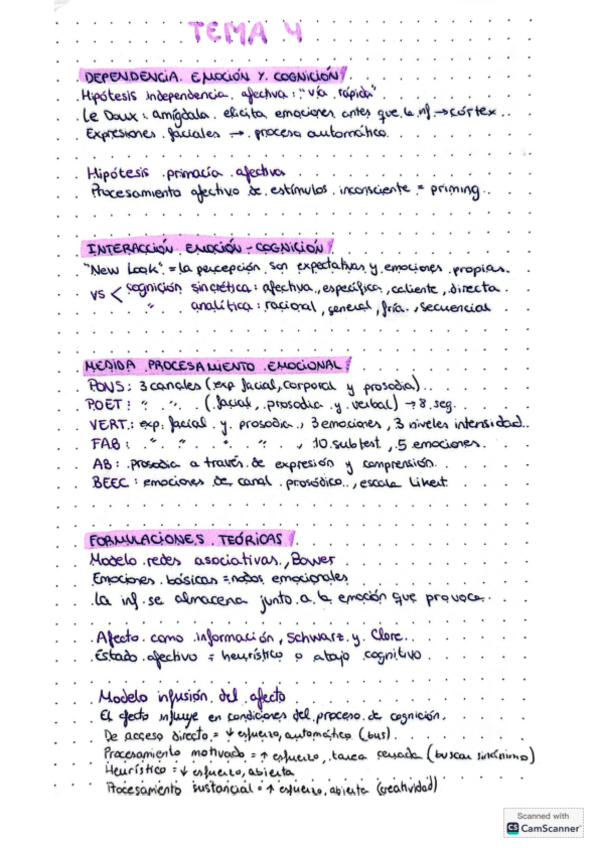 TEMA 4
DEPENDENCIA EMOCIÓN Y COGNICIÓN
Hipótesis independencia afectiva: "vía rápida"
Le Doux: amígdala elicita emociones antes que la inf → córtex
Expresiones faciales → proceso automático.
Hipótesis primacía afectiva
Procesamiento afectivo de estímulos inconsciente = priming.
INTERACCIÓN EMOCIÓN - COGNICIÓN
"New Look" = la percepción son expectativas y emociones propias.
vs < cognición sincrética: afectiva, específica, caliente, directa.
" analítica: racional, general, fría, secuencial
MEDIDA PROCESAMIENTO EMOCIONAL
PONS: 3 canales (exp facial, corporal y prosodia)
POET: " " (facial, prosodia y verbal) → 8 seg.
VERT.: exp. facial y prosodia, 3 emociones, 3 niveles intensidad.
FAB: " " " ", 10 subtest, 5 emociones.
AB: prosodia a través de expresión y comprensión.
BEEC: emociones de canal prosódico, escala Likert.
FORMULACIONES TEÓRICAS
Modelo redes asociativas, Bower
Emociones básicas = nodos emocionales
La inf. se almacena junto a la emoción que provoca.
Afecto como información, Schwarz y Clore.
Estado afectivo = heurístico o atajo cognitivo.
Modelo infusión del afecto
El efecto influye en condiciones del proceso de cognición.
De acceso directo = ↓ esfuerzo, automático (bus).
Procesamiento motivado = ↑ esfuerzo, tarea cerrada (buscar sinónimo)
Heurístico = ↓ esfuerzo, abierta
Procesamiento sustancial = ↑ esfuerzo, abierta (creatividad)
Scanned with
CS CamScanner